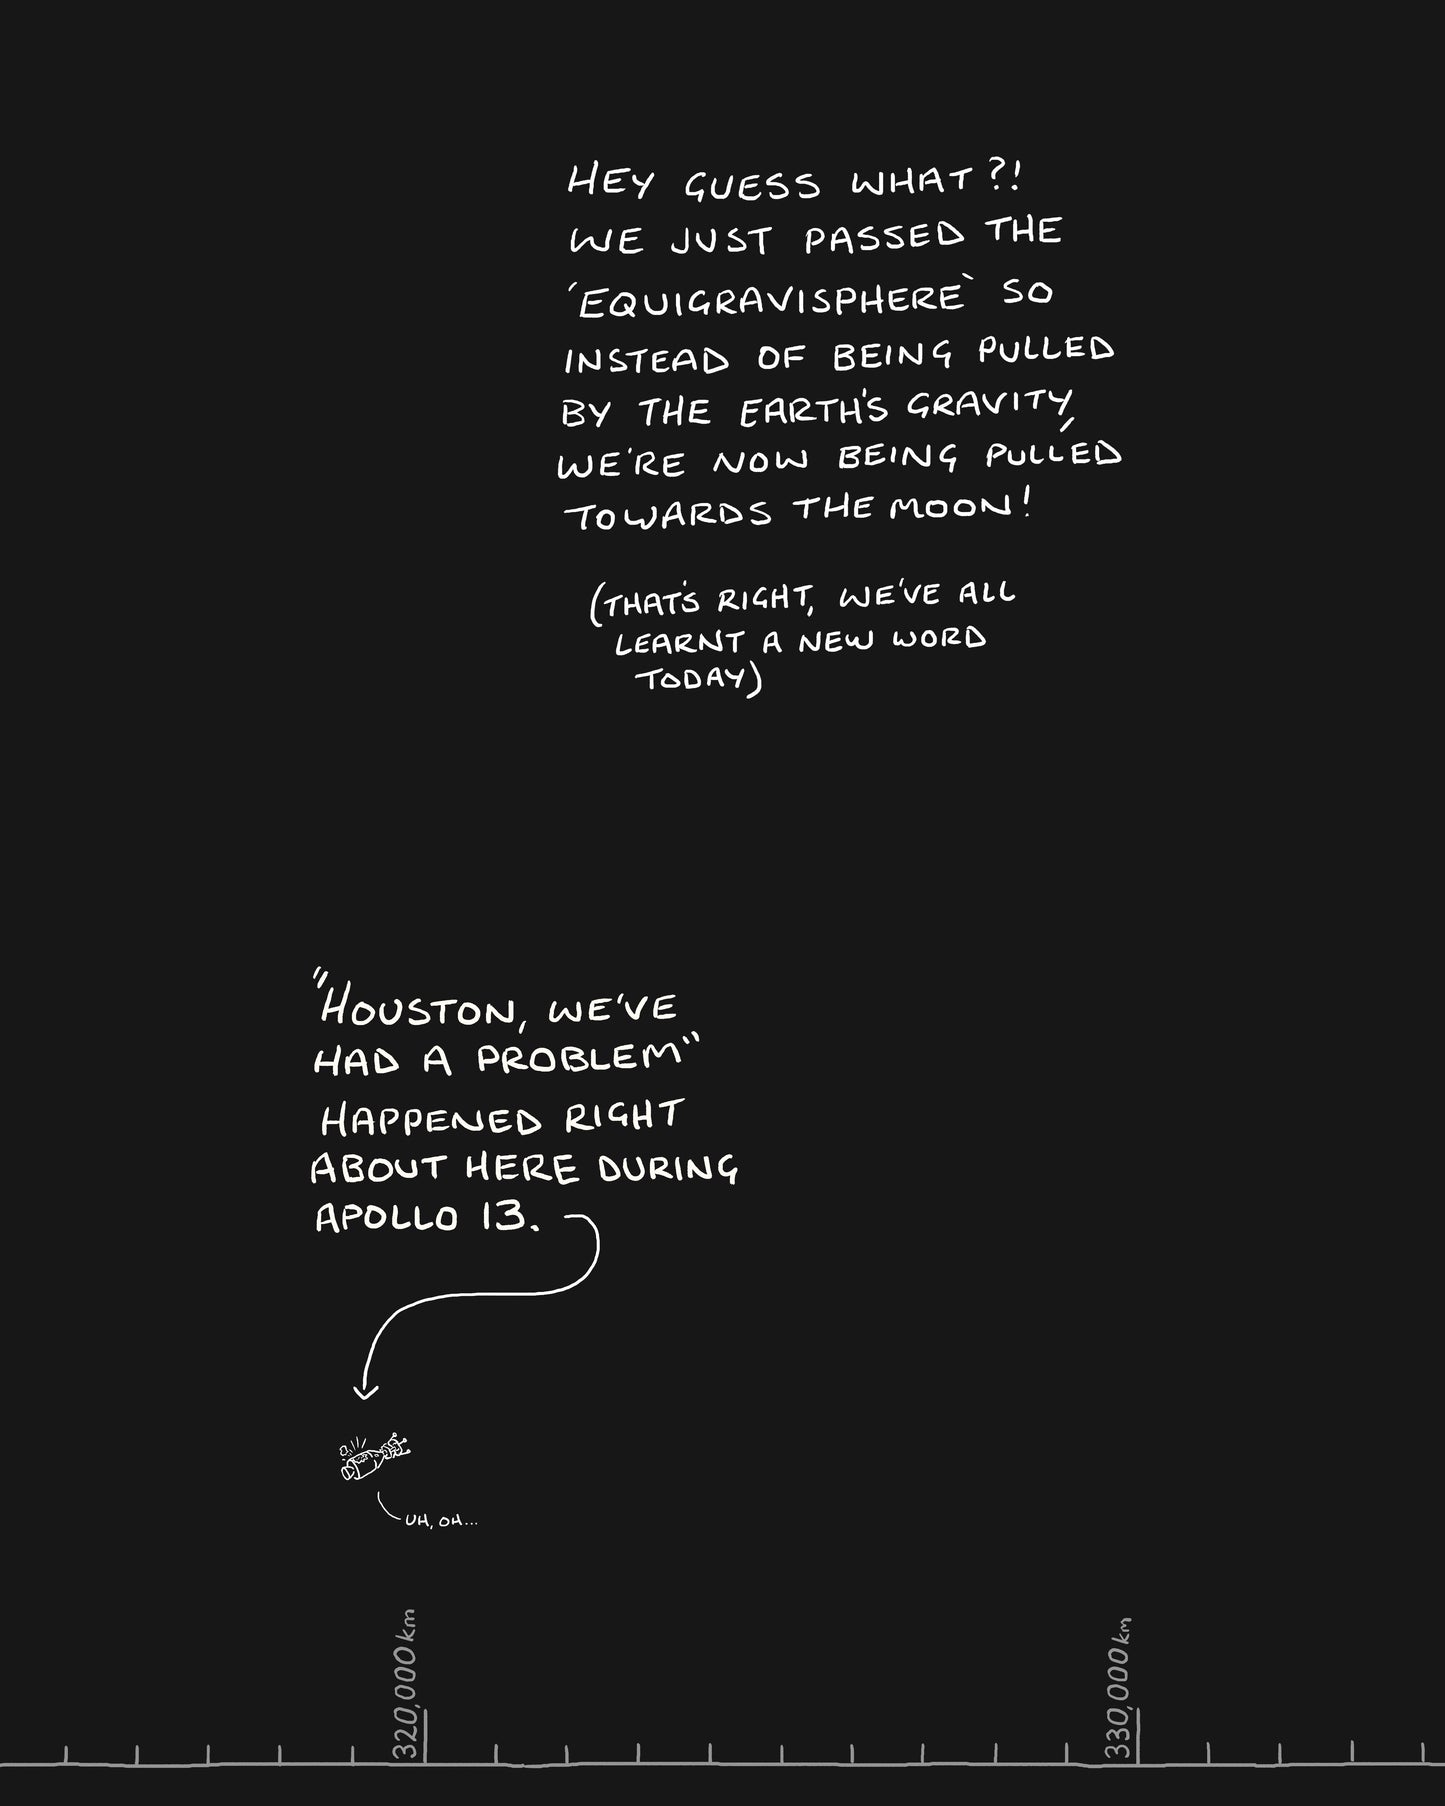 HEY GUESS WHAT?!
WE JUST PASSED THE
'EQUIGRAVISPHERE' SO
INSTEAD OF BEING PULLED
BY THE EARTH'S GRAVITY,
WE'RE NOW BEING PULLED
TOWARDS THE MOON!
(THAT'S RIGHT, WE'VE ALL
LEARNT A NEW WORD
TODAY)
"HOUSTON, WE'VE
HAD A PROBLEM"
HAPPENED RIGHT
ABOUT HERE DURING
APOLLO 13.
UH, OH...
320,000km
330,000km